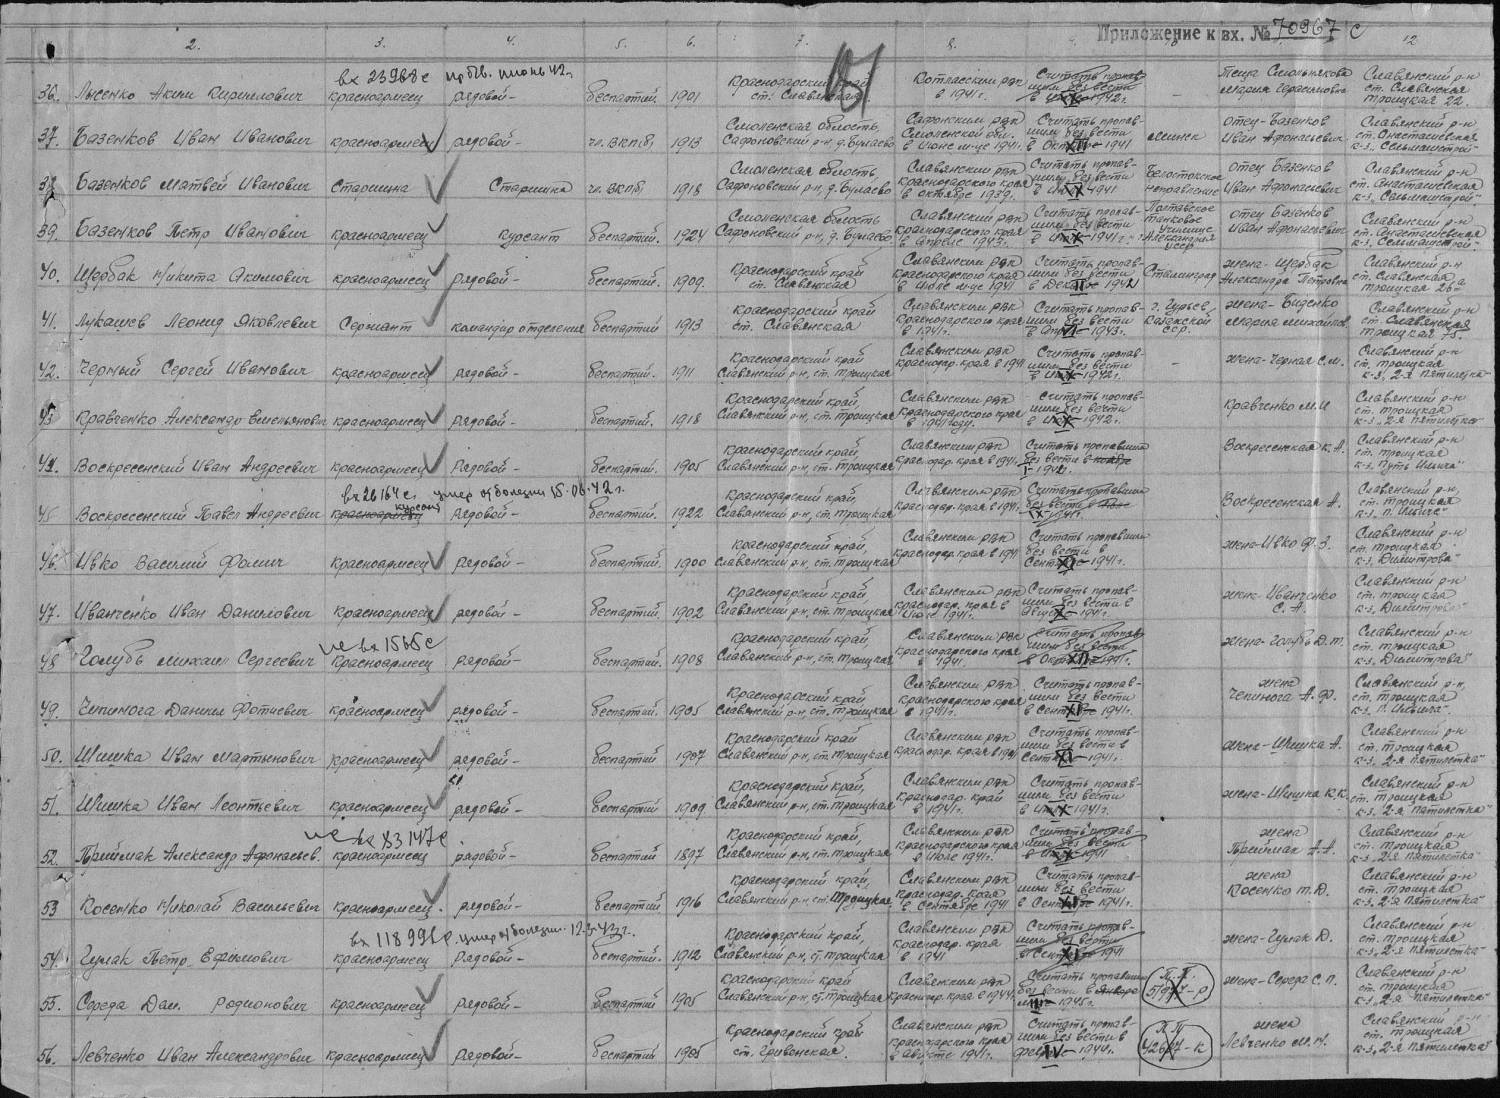 Приложение к вх. № 70967 с
2. 3. 4. 5. 6. 7. 8. 12
вх 23988с
36. Лысенко Аким Кириллович красноармеец рядовой - беспартий. 1901 Краснодарский край ст. Славянская Котласским рвк в 1941г. Считать пропавшим без вести 1942г. - Теща Смольнякова Мария Герасимовна Славянский р-н ст. Славянская Троицкая 22.
37. Базенков Иван Иванович красноармеец рядовой - чл. ВКПб 1913 Смоленская область, Сафоновский р-н д. Бумаево Сафонским рвк Смоленской обл. в июне м-це 1941г. Считать пропавшим без вести в XII 1941 Минск отец - Базенков Иван Афанасьевич Славянский р-н ст. Анастасиевская к-з. Сельмашстрой"
38. Базенков Матвей Иванович Старшина Старшина чл. ВКПб 1918 Смоленская область, Сафоновский р-н, д. Бумаево Славянским рвк Краснодарского края в октябре 1939г. Считать пропавшим без вести в IX 1941 Белостокское направление отец Базенков Иван Афанасьевич Славянский р-н ст. Анастасиевская к-з, Сельмашстрой"
39. Базенков Петр Иванович красноармеец курсант беспартий. 1924 Смоленская область Сафоновский р-н, д. Бумаево Славянским рвк Краснодарского края в апреле 1943г. Считать пропавшим без вести в 1941г. Полтавское танковое училище УССР отец Базенков Иван Афанасьевич Славянский р-н ст. Анастасиевская к-з. Сельмашстрой"
40. Щербак Никита Акимович красноармеец рядовой - беспартий. 1909. Краснодарский край ст. Славянская Славянским рвк Краснодарского края в июле м-це 1941 Считать пропавшим без вести в II 1942 Сталинград жена - Щербак Александра Петровна Славянский р-н ст. Славянская Троицкая 26а
41. Лукашев Леонид Яковлевич Сержант командир отделения беспартий 1913 Краснодарский край ст. Славянская Славянским рвк Краснодарского края в 1941г. Считать пропавшим без вести 1943г. г. Гурьев Казахской сср. жена - Биденко Мария Михайлов. Славянский р-н ст. Славянская Троицкая 75.
42. Черный Сергей Иванович красноармеец рядовой - беспартий. 1911 Краснодарский край Славянский р-н, ст. Троицкая Славянским рвк Краснодар. края в 1941 Считать пропавшим без вести в 1942г. - жена - Черная С.М. Славянский р-н ст. Троицкая к-з, 2-я пятилетка"
43 Кравченко Александр Емельянович красноармеец рядовой - беспартий. 1918 Краснодарский край, Славянский р-н, ст. Троицкая Славянским рвк Краснодарского края в 1941 году. Считать пропавшим без вести в 1942г. Кравченко М.И Славянский р-н ст. Троицкая к-з „2-я пятилетка"
44. Воскресенский Иван Андреевич красноармеец Рядовой - беспартий. 1905 Краснодарский край, Славянский р-н, ст. Троицкая Славянским рвк Краснодар. края в 1941г. Считать пропавшим без вести в ноябре I - 1942г. Воскресенская К.А. Славянский р-н ст. Троицкая к-з. Путь Ильича"
вх 26164с. умер от болезни 15.06.42г.
45 Воскресенский Павел Андреевич красноармеец курсант Рядовой - беспартий. 1922 Краснодарский край, Славянский р-н, ст. Троицкая Славянским рвк Краснодар. края в 1941г. Считать пропавшим без вести IX 1941г. Воскресенская А. Славянский р-н, ст. Троицкая к-з, П. Ильича"
46. Ивко Василий Фомич Красноармеец рядовой - беспартий. 1900 Краснодарский край, Славянский р-н, ст. Троицкая Славянским рвк Краснодар края в 1941 Считать пропавшим без вести в Сент XI 1941г. жена - Ивко Ф.З. Славянский р-н ст. Троицкая к-з, Димитрова"
47. Иванченко Иван Данилович Красноармеец рядовой - беспартий. 1902 Краснодарский край, Славянский р-н, ст. Троицкая Славянским рвк Краснодар. края в Июле 1941г. Считать пропавшим без вести в X 1941г. жена - Иванченко С.А. Славянский р-н ст. Троицкая к-з, Димитрова"
не вх 1565с
48 Голубь Михаил Сергеевич Красноармеец рядовой - беспартий. 1908 Краснодарский край, Славянский р-н, ст. Троицкая Славянским рвк Краснодарского края в 1941. Считать пропавшим без вести в Окт XII 1941г. жена - Голубь Д.Т. Славянский р-н ст. Троицкая к-з, Димитрова"
49. Чепинога Даниил Фотиевич красноармеец рядовой - беспартий 1905 Краснодарский край Славянский р-н, ст. Троицкая Славянским рвк Краснодарского края в 1941г. Считать пропавшим без вести в Сент XI 1941г. жена Чепинога А.Ф. Славянский р-н, ст. Троицкая к-з. П. Ильича"
50. Шишка Иван Мартынович красноармеец рядовой - беспартий 1907 Краснодарский край Славянский р-н, ст. Троицкая Славянским рвк Краснодар. края в 1941 Считать пропавшим без вести в Сент XI 1941г. жена - Шишка А. Славянский р-н ст. Троицкая к-з, 2-я пятилетка"
51. Шишка Иван Леонтьевич красноармеец рядовой - беспартий 1909 Краснодарский край, Славянский р-н, ст. Троицкая Славянским рвк Краснодар. край в 1941г. Считать пропавшим без вести в X 1941г. жена - Шишка К.К. Славянский р-н ст. Троицкая к-з, 2-я пятилетка"
не вх 83147с
52. Приймак Александр Афанасьев. красноармеец рядовой - беспартий 1897 Краснодарский край, Славянский р-н, ст. Троицкая Славянским рвк Краснодарского края в Июле 1941г. Считать пропавшим без вести 1941 жена Приймак А.А. Славянский р-н ст. Троицкая к-з „2-я пятилетка"
53 Косенко Николай Васильевич красноармеец. рядовой - беспартий 1916 Краснодарский край, Славянский р-н ст. Троицкая Славянским рвк Краснодар. края в Сентябре 1941 Считать пропавшим без вести в Сент 1941г. жена Косенко Т.Д. Славянский р-н ст. Троицкая к-з, 2-я пятилетка"
вх 118991с. умер от болезни 12.3.43г.
54. Гумак Петр Ефимович красноармеец Рядовой - беспартий. 1912 Краснодарский край, Славянский р-н, ст. Троицкая Славянским рвк Краснодар. края в 1941 Считать пропавшим без вести в Сент XI 1941 жена - Гумак Д. Славянский р-н ст. Троицкая к-з, 2-я пятилетка"
55. Середа Дан. Родионович красноармеец рядовой - беспартий 1905 Краснодарский край Славянский р-н, ст. Троицкая Славянским рвк Краснодар. края в 1941г. Считать пропавшим без вести в январе III 1945г. жена - Середа С.П. Славянский р-н ст. Троицкая к-з „2-я пятилетка"
56. Левченко Иван Александрович красноармеец рядовой - беспартий 1905 Краснодарский край ст. Гривенская. Славянским рвк Краснодарского края в августе 1941г. Считать пропавшим без вести в фев IV 1944г. жена Левченко М.Н. Славянский р-н ст. Троицкая к-з, 2-я пятилетка"